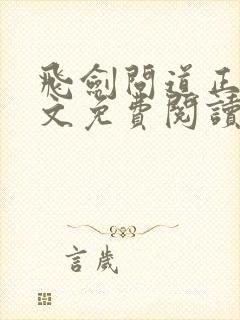 飛劍問道正
文免費閱讀
言歲